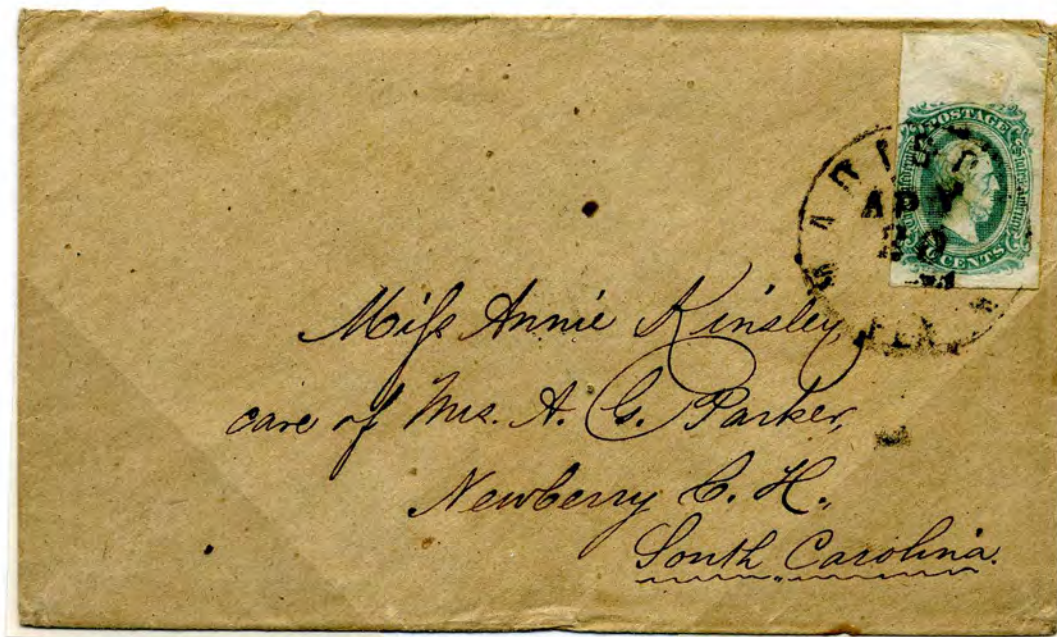 POSTAGE
CENTS
AP
20
Miſs Annie Kinsley,
care of Mrs. A. G. Parker,
Newberry C. H.,
South Carolina.